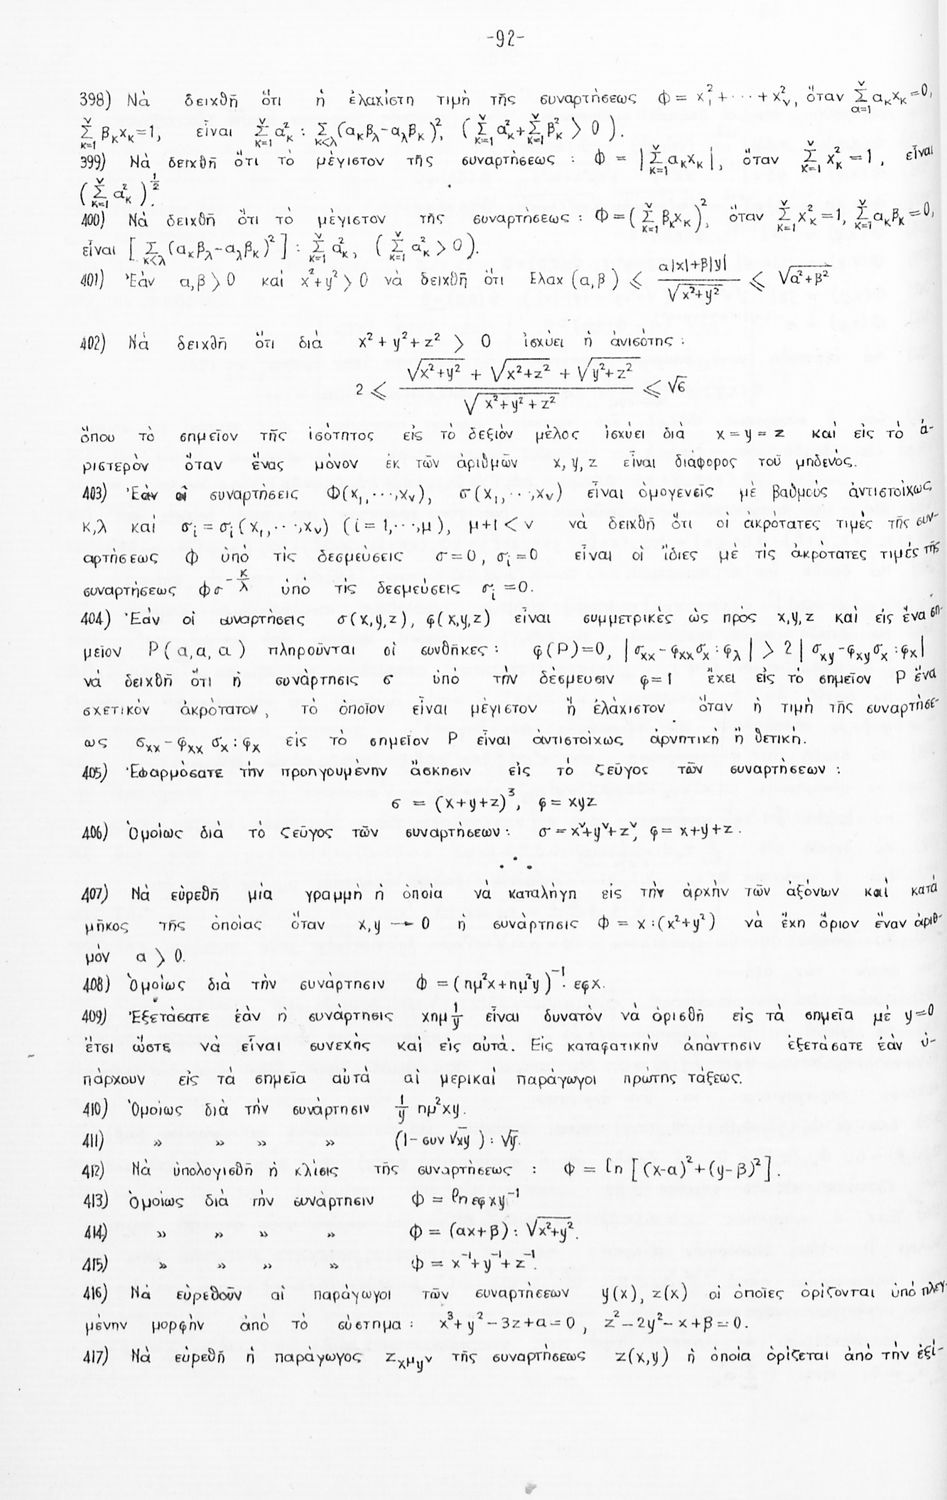 -92-
398) Νὰ δειχθῆ ὅτι ἡ ἐλαχίστη τιμὴ τῆς συναρτήσεως Φ = x₁² + ··· + xᵥ², ὅταν Σ_{α=1}^{ν} α_κ x_κ = 0,
Σ_{κ=1}^{ν} β_κ x_κ = 1, εἶναι Σ_{κ=1}^{ν} α_κ² : Σ_{κ<λ} (α_κ β_λ - α_λ β_κ)², ( Σ_{κ=1}^{ν} α_κ² + Σ_{κ=1}^{ν} β_κ² > 0 ).
399) Νὰ δειχθῆ ὅτι τὸ μέγιστον τῆς συναρτήσεως : Φ = | Σ_{κ=1}^{ν} α_κ x_κ |, ὅταν Σ_{κ=1}^{ν} x_κ² = 1, εἶναι
( Σ_{κ=1}^{ν} α_κ² )^{1/2}.
400) Νὰ δειχθῆ ὅτι τὸ μέγιστον τῆς συναρτήσεως : Φ = ( Σ_{κ=1}^{ν} β_κ x_κ )², ὅταν Σ_{κ=1}^{ν} x_κ² = 1, Σ_{κ=1}^{ν} α_κ β_κ = 0,
εἶναι [ Σ_{κ<λ} (α_κ β_λ - α_λ β_κ)² ] : Σ_{κ=1}^{ν} α_κ², ( Σ_{κ=1}^{ν} α_κ² > 0 ).
401) Ἐὰν α,β > 0 καὶ x² + y² > 0 νὰ δειχθῆ ὅτι Ελαx (α,β) ≤ (α|x| + β|y|) / √(x² + y²) ≤ √(α² + β²)
402) Νὰ δειχθῆ ὅτι διὰ x² + y² + z² > 0 ἰσχύει ἡ ἀνισότης :
2 ≤ (√(x² + y²) + √(x² + z²) + √(y² + z²)) / √(x² + y² + z²) ≤ √6
ὅπου τὸ σημεῖον τῆς ἰσότητος εἰς τὸ δεξιὸν μέλος ἰσχύει διὰ x = y = z καὶ εἰς τὸ ἀ-
ριστερὸν ὅταν ἕνας μόνον ἐκ τῶν ἀριθμῶν x, y, z εἶναι διάφορος τοῦ μηδενός.
403) Ἐὰν οἱ συναρτήσεις Φ(x₁,···,xᵥ), σ(x₁,···,xᵥ) εἶναι ὁμογενεῖς μὲ βαθμοὺς ἀντιστοίχως
κ,λ καὶ σᵢ = σᵢ(x₁,···,xᵥ) (i = 1,···,μ), μ+1 < ν νὰ δειχθῆ ὅτι οἱ ἀκρότατες τιμὲς τῆς συν-
αρτήσεως φ ὑπὸ τὶς δεσμεύσεις σ = 0, σᵢ = 0 εἶναι οἱ ἴδιες μὲ τὶς ἀκρότατες τιμὲς τῆς
συναρτήσεως φσ^{-κ/λ} ὑπὸ τὶς δεσμεύσεις σᵢ = 0.
404) Ἐὰν οἱ συναρτήσεις σ(x,y,z), φ(x,y,z) εἶναι συμμετρικὲς ὡς πρὸς x,y,z καὶ εἰς ἕνα ση-
μεῖον P(α,α,α) πληροῦνται οἱ συνθῆκες : φ(P)=0, |σ_{xx} - φ_{xx} σ_x : φ_λ| > 2|σ_{xy} - φ_{xy} σ_x : φ_x|
νὰ δειχθῆ ὅτι ἡ συνάρτησις σ ὑπὸ τὴν δέσμευσιν φ=1 ἔχει εἰς τὸ σημεῖον P ἕνα
σχετικὸν ἀκρότατον, τὸ ὁποῖον εἶναι μέγιστον ἢ ἐλάχιστον ὅταν ἡ τιμὴ τῆς συναρτήσε-
ως σ_{xx} - φ_{xx} σ_x : φ_x εἰς τὸ σημεῖον P εἶναι ἀντιστοίχως ἀρνητικὴ ἢ θετική.
405) Ἐφαρμόσατε τὴν προηγουμένην ἄσκησιν εἰς τὸ ζεῦγος τῶν συναρτήσεων :
σ = (x+y+z)³, φ = xyz
406) Ὁμοίως διὰ τὸ ζεῦγος τῶν συναρτήσεων : σ = x^ν + y^ν + z^ν, φ = x+y+z.
407) Νὰ εὑρεθῆ μία γραμμὴ ἡ ὁποία νὰ καταλήγη εἰς τὴν ἀρχὴν τῶν ἀξόνων καὶ κατὰ
μῆκος τῆς ὁποίας ὅταν x,y → 0 ἡ συνάρτησις Φ = x : (x² + y²) νὰ ἔχη ὅριον ἕναν ἀριθ-
μὸν α > 0.
408) Ὁμοίως διὰ τὴν συνάρτησιν Φ = (ημ²x + ημ²y)⁻¹ · εφx.
409) Ἐξετάσατε ἐὰν ἡ συνάρτησις xημ 1/y εἶναι δυνατὸν νὰ ὁρισθῆ εἰς τὰ σημεῖα μὲ y=0
ἔτσι ὥστε νὰ εἶναι συνεχὴς καὶ εἰς αὐτά. Εἰς καταφατικὴν ἀπάντησιν ἐξετάσατε ἐὰν ὑ-
πάρχουν εἰς τὰ σημεῖα αὐτὰ αἱ μερικαὶ παράγωγοι πρώτης τάξεως.
410) Ὁμοίως διὰ τὴν συνάρτησιν 1/y ημ²xy.
411) » » » » (1 - συν √xy) : √y.
412) Νὰ ὑπολογισθῆ ἡ κλίσις τῆς συναρτήσεως : Φ = ln [(x-α)² + (y-β)²].
413) Ὁμοίως διὰ τὴν συνάρτησιν Φ = ln εφ xy⁻¹
414) » » » » Φ = (αx+β) : √(x² + y²).
415) » » » » Φ = x⁻¹ + y⁻¹ + z⁻¹.
416) Νὰ εὑρεθοῦν αἱ παράγωγοι τῶν συναρτήσεων y(x), z(x) οἱ ὁποῖες ὁρίζονται ὑπὸ πλεγ-
μένην μορφὴν ἀπὸ τὸ σύστημα : x³ + y² - 3z + α = 0, z² - 2y² - x + β = 0.
417) Νὰ εὑρεθῆ ἡ παράγωγος z_{x^μ y^ν} τῆς συναρτήσεως z(x,y) ἡ ὁποία ὁρίζεται ἀπὸ τὴν ἐξί-